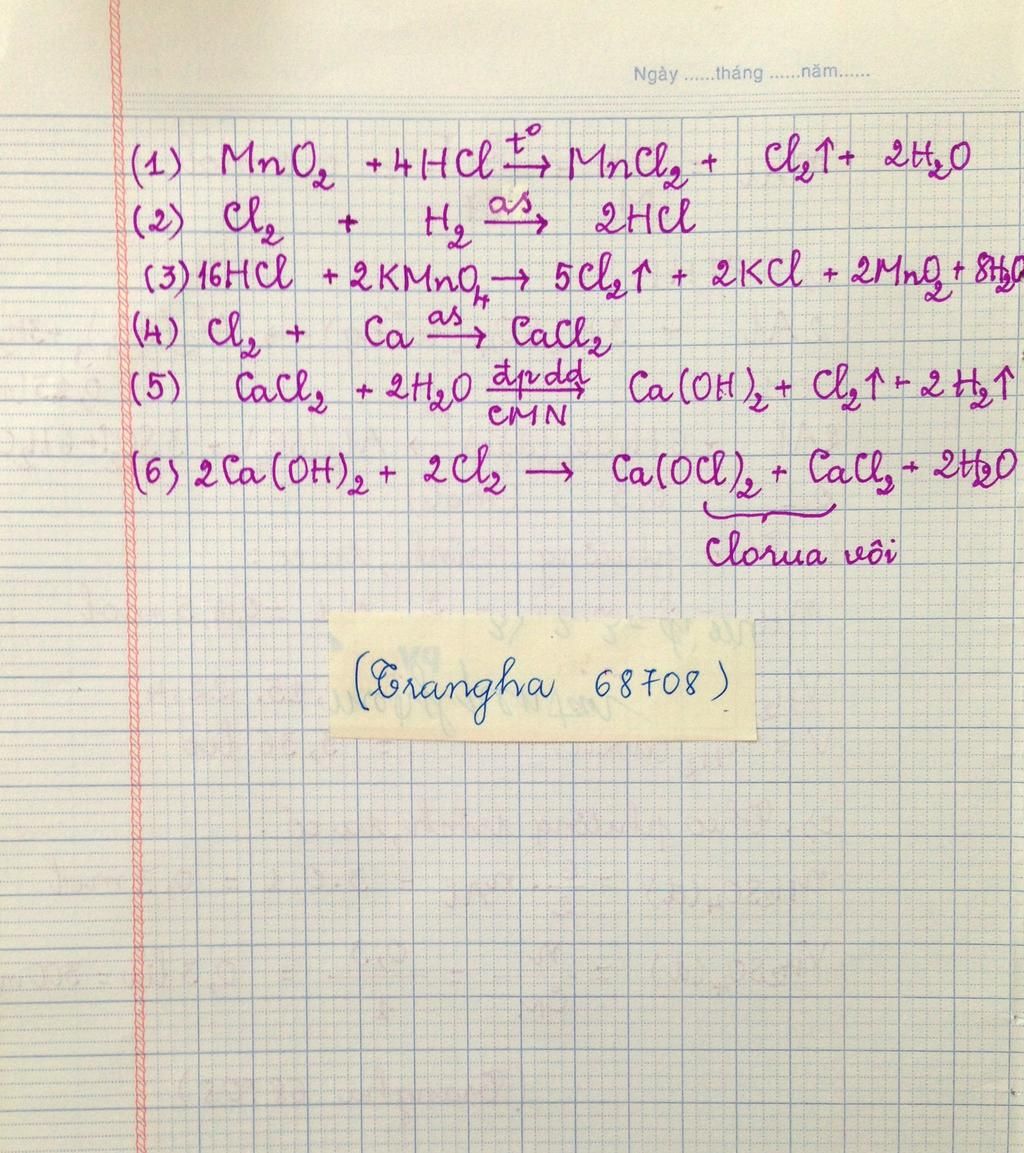 Ngày ......tháng ......năm......
(1) MnO₂ + 4HCl →(t°) MnCl₂ + Cl₂↑ + 2H₂O
(2) Cl₂ + H₂ →(as) 2HCl
(3) 16HCl + 2KMnO₄ → 5Cl₂↑ + 2KCl + 2MnO₂ + 8H₂O
(4) Cl₂ + Ca →(as) CaCl₂
(5) CaCl₂ + 2H₂O →(đpdd / CMN) Ca(OH)₂ + Cl₂↑ + 2H₂↑
(6) 2Ca(OH)₂ + 2Cl₂ → Ca(OCl)₂ + CaCl₂ + 2H₂O
Clorua vôi
(Trangha 68708)